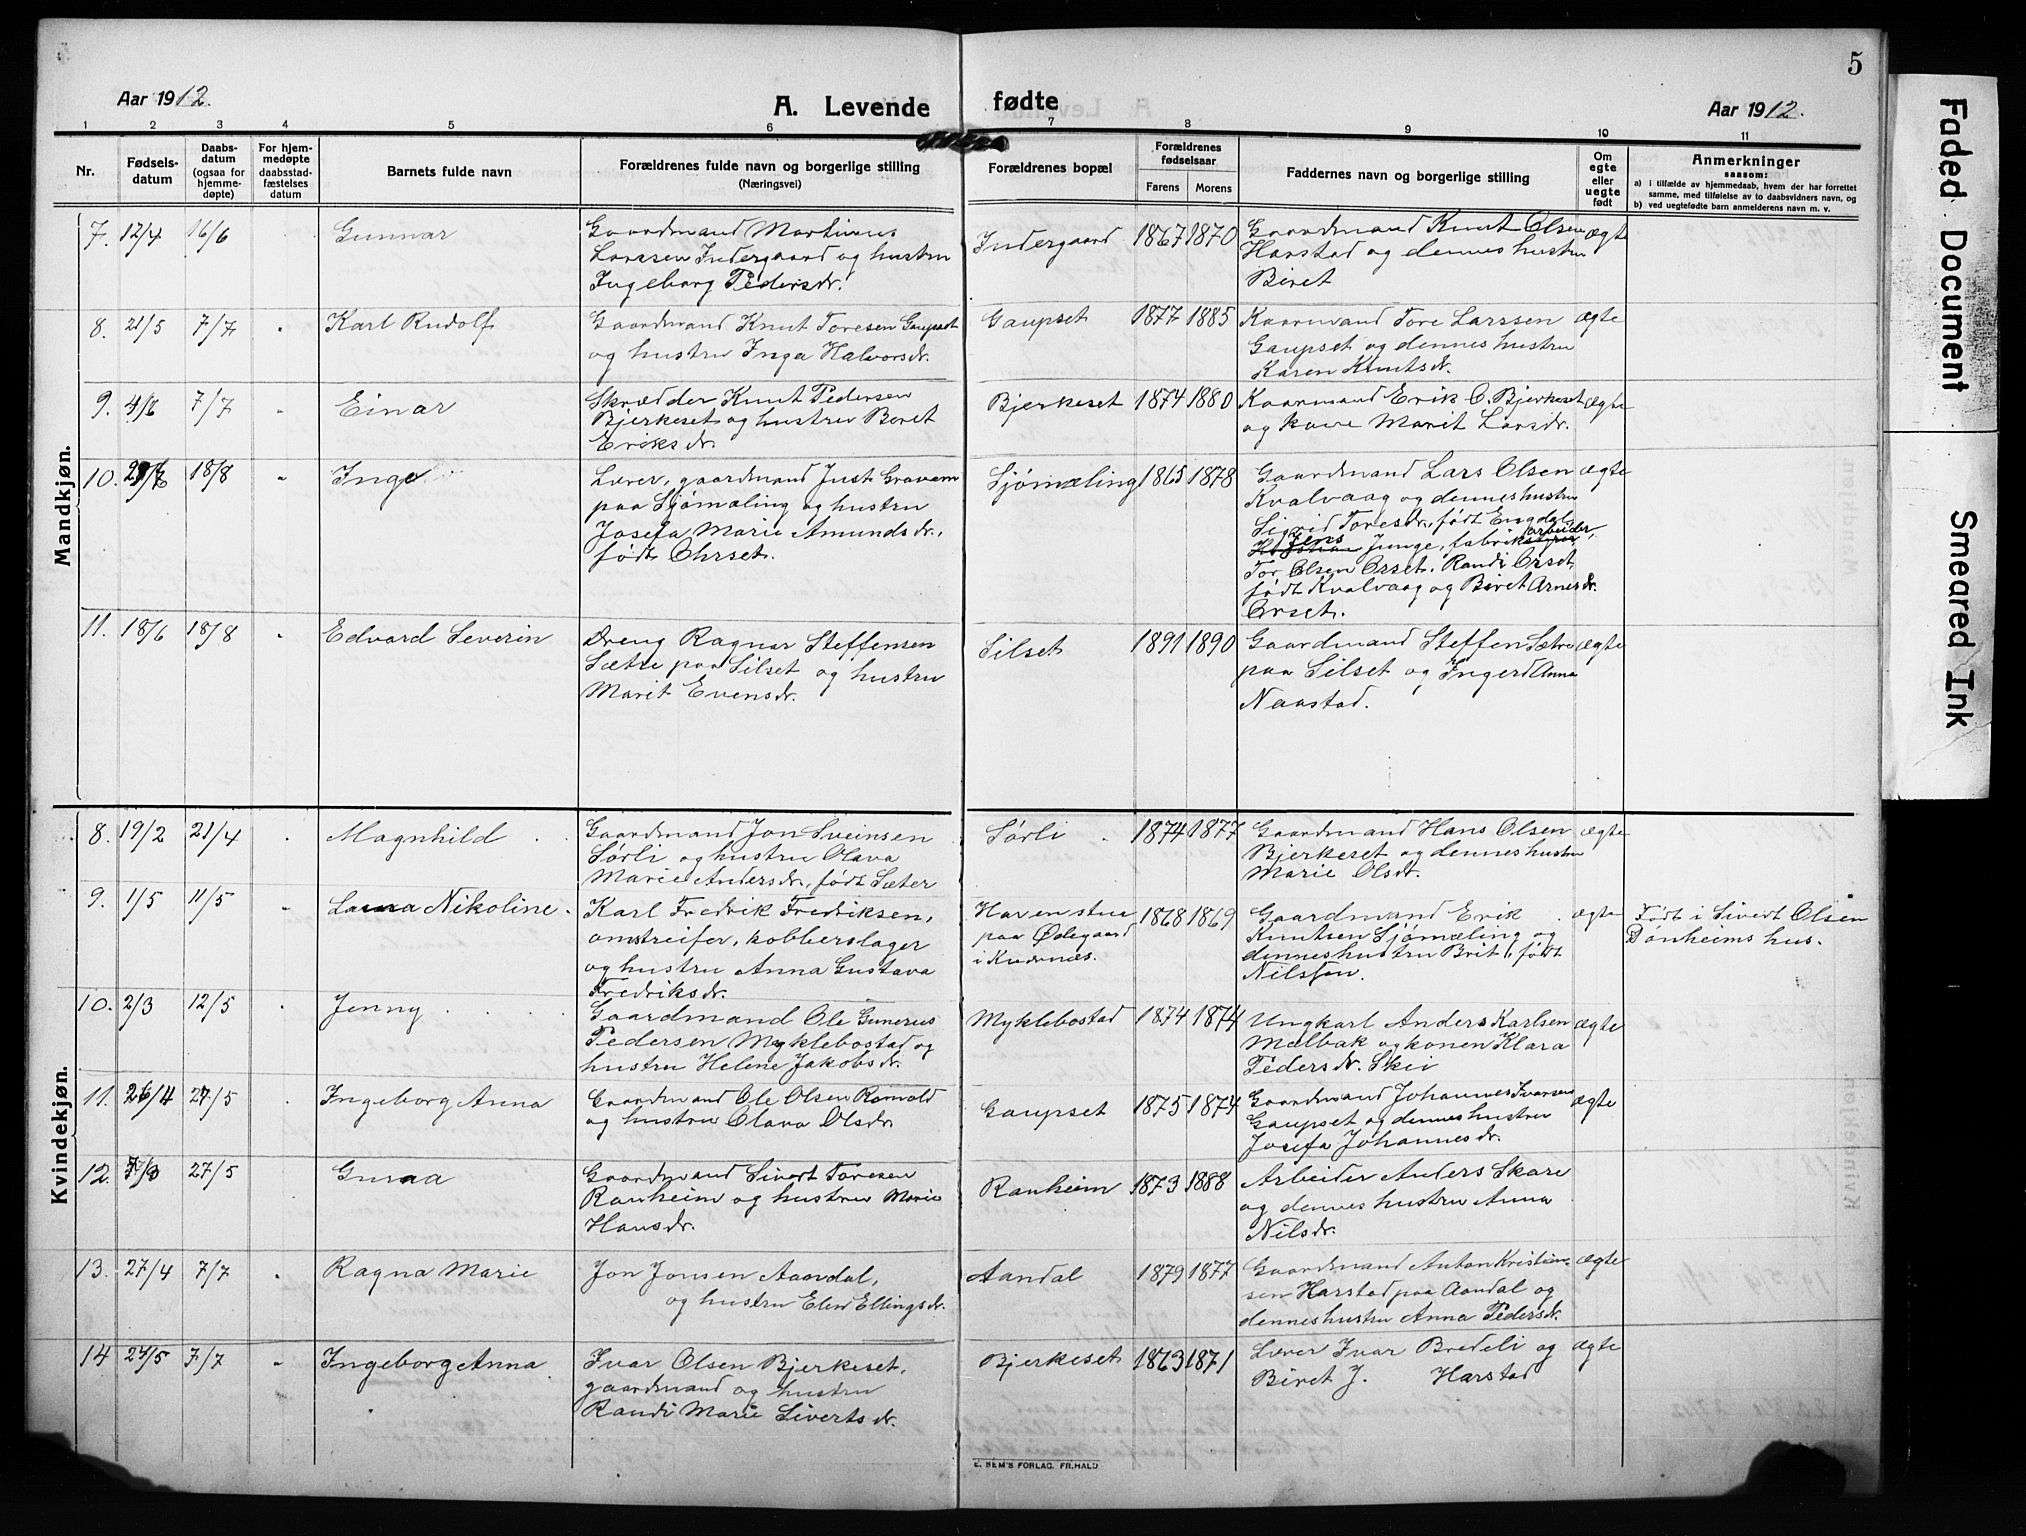 5
Aar 1912.
A. Levende fødte
Aar 1912.
1 2 3 4 5 6 7 8 9 10 11
Nr.
Fødsels-
datum
Daabs-
datum
(ogsaa for
hjemme-
døpte)
For hjem-
medøpte
daabsstad-
fæstelses
datum
Barnets fulde navn
Forældrenes fulde navn og borgerlige stilling
(Næringsvei)
Forældrenes bopæl
Forældrenes
fødselsaar
Farens Morens
Faddernes navn og borgerlige stilling
Om
egte
eller
uegte
født
Anmerkninger
saasom:
a) i tilfælde av hjemmedaab, hvem der har forrettet
samme, med tilføielse av to daabsvidners navn, og
b) ved uegtefødte barn anmelderens navn m. v.
Mandkjøn.
7. 12/4 16/6 Gunnar
Gaardmand Martinus
Larssen Indergaard og hustru
Ingeborg Pedersdr.
Indergaard 1867 1870
Gaardmand Knut Olsen
Harstad og dennes hustru
Beret
ægte
8. 21/5 7/7 " Karl Rudolf
Gaardmand Knut Toresen Gaupset
og hustru Inga Halvorsdr.
Gaupset 1877 1885
Kaarmand Tore Larssen
Gaupset og dennes hustru
Karen Knutsdr.
ægte
9. 4/6 7/7 " Einar
Skrædder Knut Pedersen
Bjerkeset og hustru Beret
Eriksdr.
Bjerkeset 1874 1880
Kaarmand Erik O. Bjerkeset
og kone Marit Larsdr.
ægte
10. 18/8 " Inge
Lærer, gaardmand Just Gravem
paa Sjømæling og hustru
Josefa Marie Amundsdr.,
født Ohrset.
Sjømæling 1865 1878
Gaardmand Lars Olsen
Kvalvaag og dennes hustru
Sigrid Toresdr., født Engdal,
Jens Junge, fabrikarbeider,
Tor Olsen Orset. Randi Orset,
født Kvalvaag og Beret Arnesdr.
Orset.
ægte
11. 18/6 18/8 " Edvard Severin
Dreng Ragnar Steffensen
Sætre paa Silset og hustru
Marit Evensdr.
Silset 1891 1890
Gaardmand Steffen Sætre
paa Silset og Ingerd Anna
Naastad.
ægte
Kvindekjøn.
8. 19/2 21/4 " Magnhild
Gaardmand Jon Sveinsen
Sørli og hustru Olava
Marie Andersdr., født Sæter
Sørli 1874 1877
Gaardmand Hans Olsen
Bjerkeset og dennes hustru
Marie Olsdr.
ægte
9. 1/5 11/5 " Nikoline.
Karl Fredrik Fredriksen,
omstreifer, kobberslager
og hustru Anna Gustava
Fredriksdr.
paa Ødegaard
i Kvernnes.
1868 1869
Gaardmand Erik
Knutsen Sjømæling og
dennes hustru Brit, født
Nilssen.
ægte
Født i Sivert Olsen
Dønheims hus.
10. 2/3 12/5 " Jenny
Gaardmand Ole Gunerius
Pedersen Myklebostad og
hustru Helene Jakobsdr.
Myklebostad 1874 1874
Ungkarl Anders Karlsen
Melbak og konen Klara
Pedersdr. Skei
ægte
11. 26/4 27/5 " Ingeborg Anna
Gaardmand Ole Olsen Romold
og hustru Olava Olsdr.
Gaupset 1875 1874
Gaardmand Johannes Ivarsen
Gaupset og dennes hustru
Josefa Johannesdr.
ægte
12. 27/5
Gaardmand Sivert Toresen
Ranheim og hustru Marie
Hansdr.
Ranheim 1873 1888
Arbeider Anders Skare
og dennes hustru Anna
Nilsdr.
13. 27/4 7/7 " Ragna Marie
Jon Jonsen Aandal,
og hustru Elen Ellingsdr.
Aandal 1879 1877
Gaardmand Anton Kristian-
sen Harstad paa Aandal og
dennes hustru Anna Pedersdr.
ægte
14 24/5 7/7 " Ingeborg Anna
Ivar Olsen Bjerkeset,
gaardmand og hustru
Randi Marie Sivertsdr.
Bjerkeset 1863 1871
Lærer Ivar Bredeli og
Beret J. Harstad
ægte
E. SEM'S FORLAG. FR.HALD
Faded Document
Smeared Ink